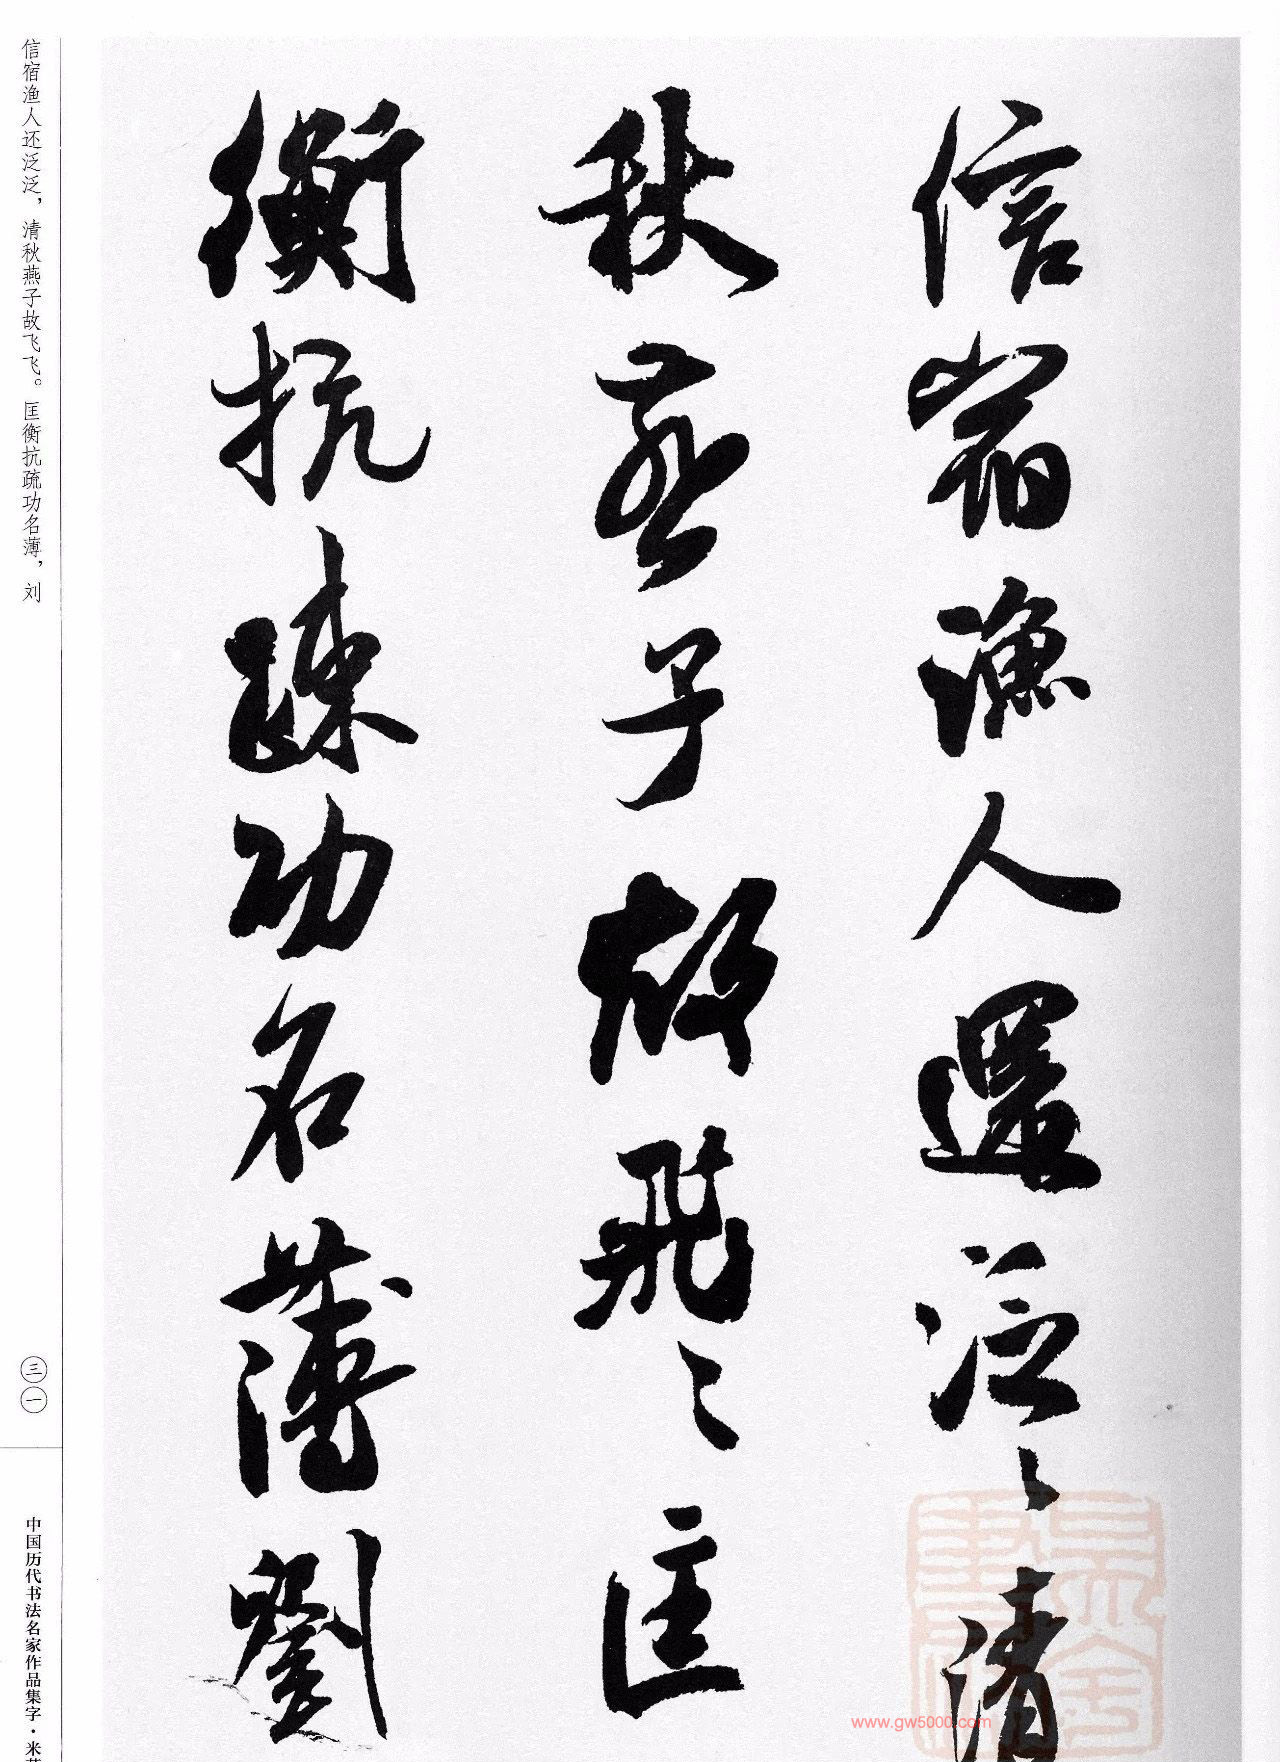 信宿漁人還泛〻清
秋燕子故飛〻匡
衡抗疏功名薄劉
信宿渔人还泛泛，清秋燕子故飞飞。匡衡抗疏功名薄，刘
三一
中国历代书法名家作品集字·米
www.gw5000.com